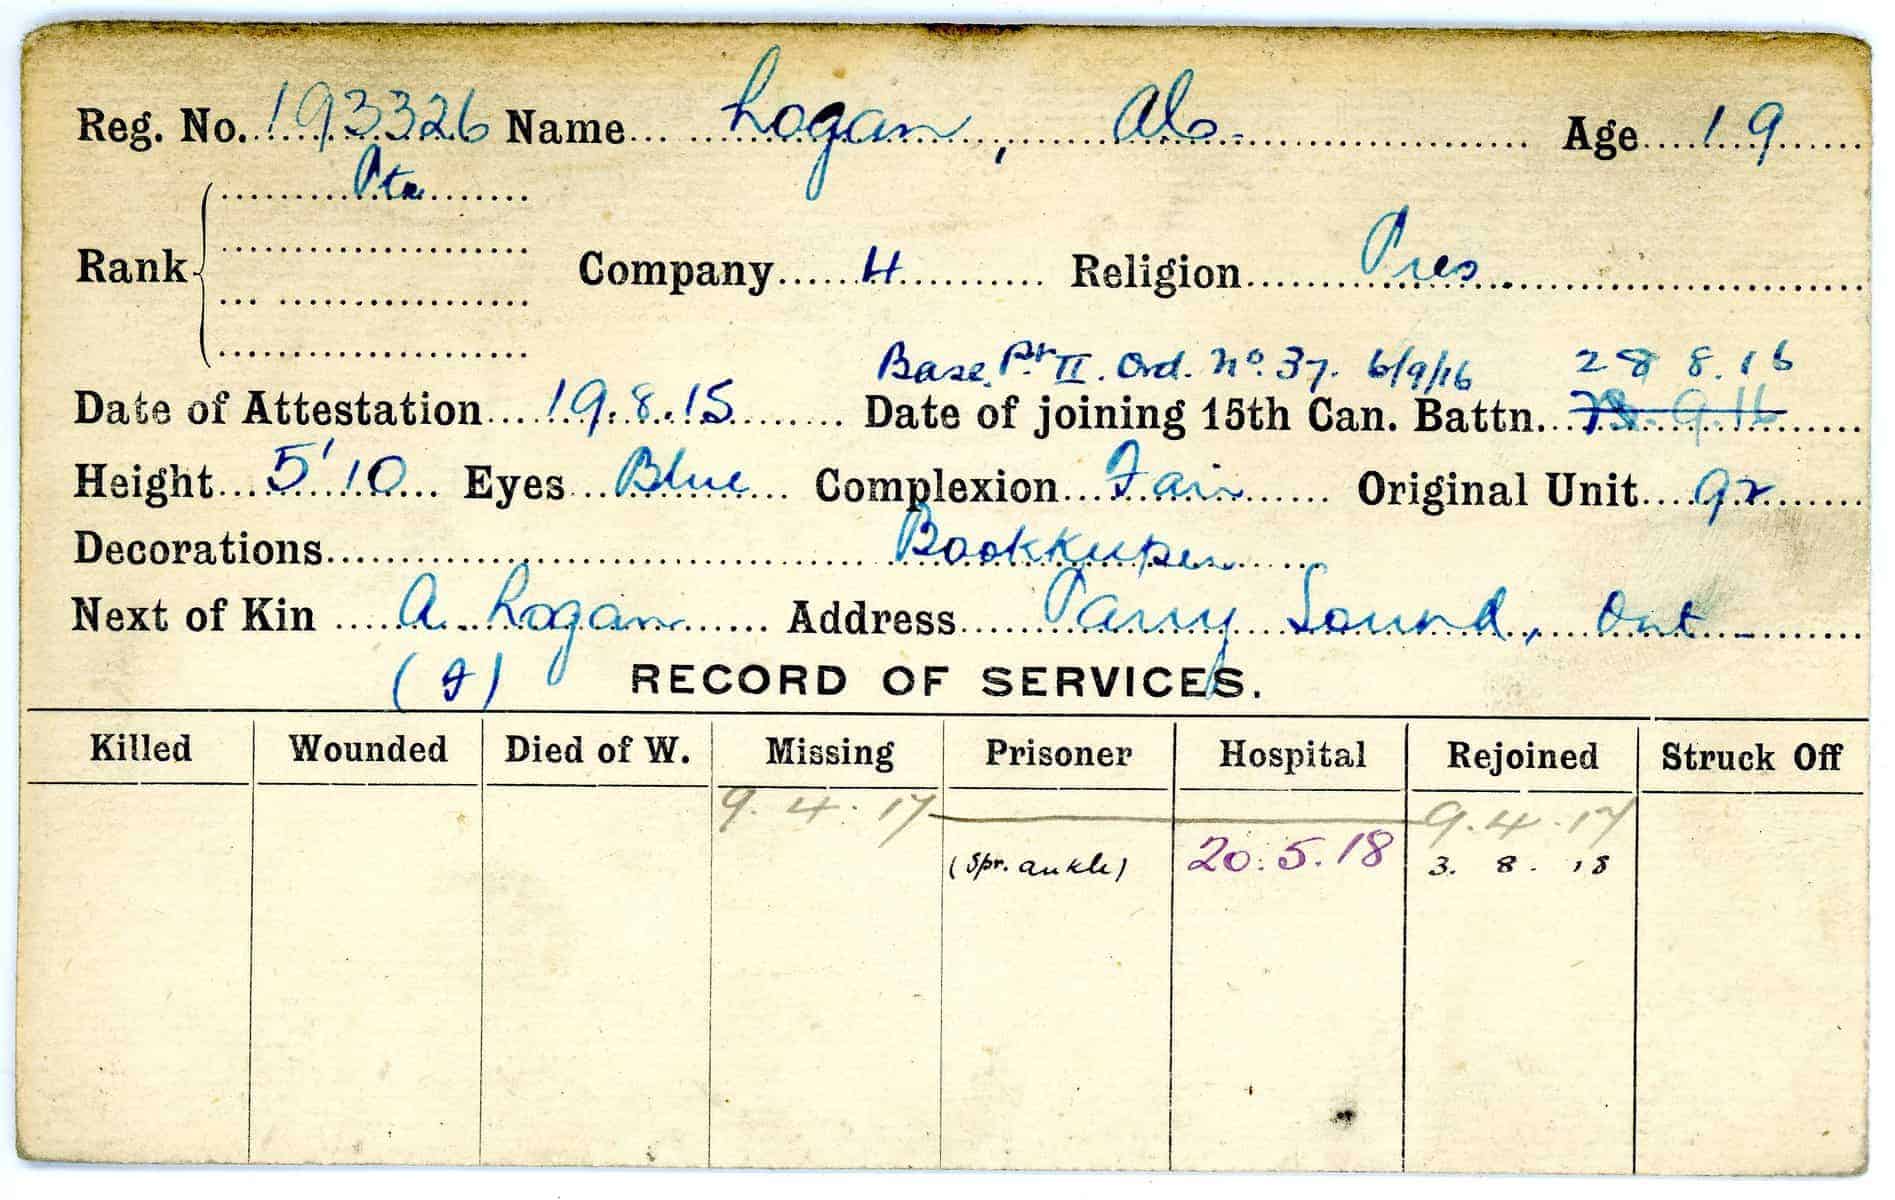 Reg. No. 193326 Name Logan, Alb. Age 19
Pte
Rank Company 4 Religion Pres.
Base Pt II. Ord. No. 37. 6/9/16 28 8.16
Date of Attestation 19.8.15 Date of joining 15th Can. Battn. 9.16
Height 5'10 Eyes Blue Complexion Fair Original Unit 92
Decorations Bookkeeper
Next of Kin A. Logan Address Parry Sound, Ont
RECORD OF SERVICES.
Killed Wounded Died of W. Missing Prisoner Hospital Rejoined Struck Off
9.4.17 9.4.17
(Spr. ankle) 20.5.18 3.8.18